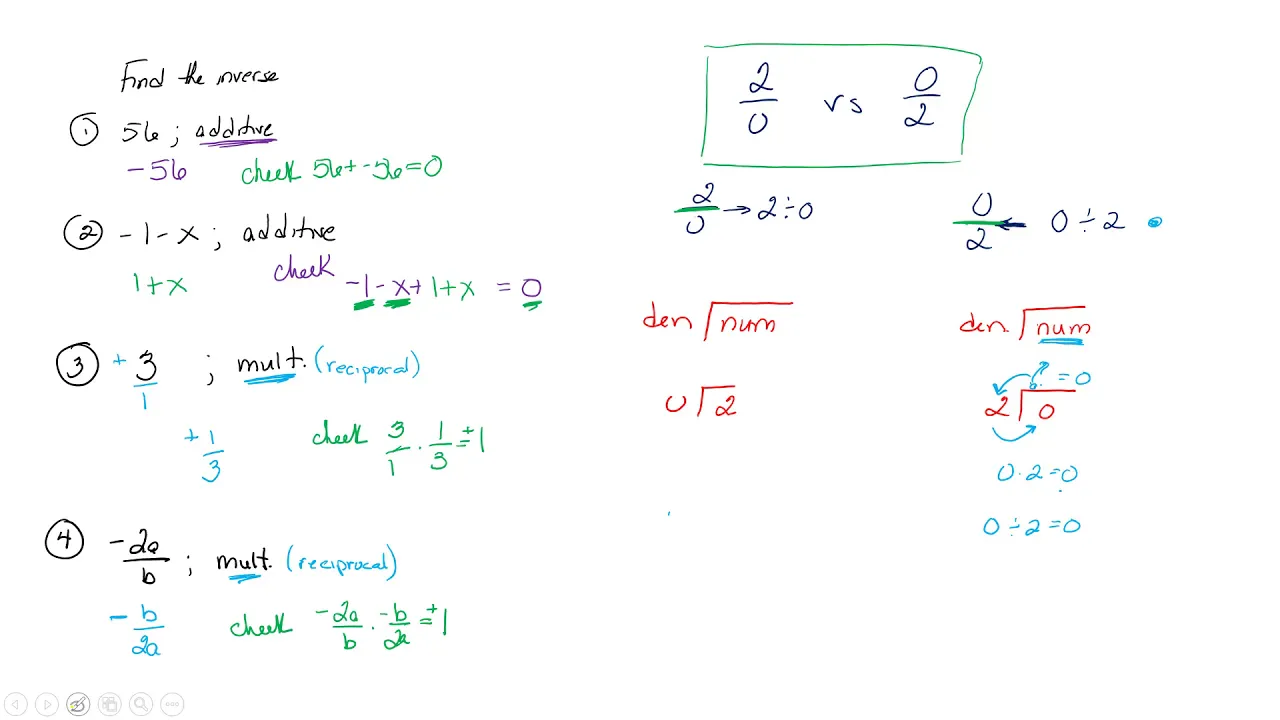 Find the inverse
① 56 ; additive
-56 check 56 + -56 = 0
② -1 - x ; additive
1 + x check -1 - x + 1 + x = 0
③ + 3/1 ; mult. (reciprocal)
+ 1/3 check 3/1 · 1/3 = +1
④ -2a/b ; mult. (reciprocal)
- b/2a check -2a/b · -b/2a = +1
2/0 vs 0/2
2/0 → 2 ÷ 0
den √num
0 √2
0/2 ← 0 ÷ 2
den. √num
? = 0
2 √0
0 · 2 = 0
0 ÷ 2 = 0